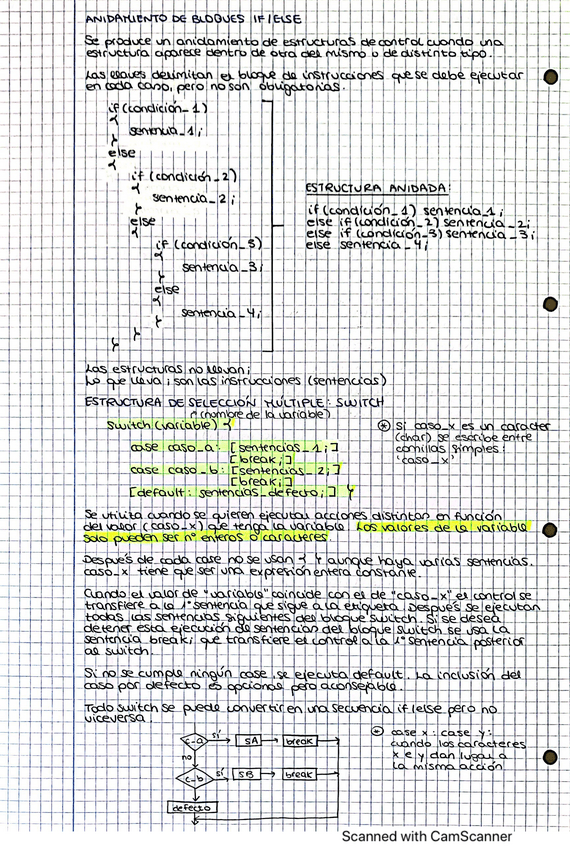 ANIDAMIENTO DE BLOQUES IF/ELSE
Se produce un anidamiento de estructuras de control cuando una
estructura aparece dentro de otra del mismo o de distinto tipo.
Las llaves delimitan el bloque de instrucciones que se debe ejecutar
en cada caso, pero no son obligatorias.
if (condición_1)
{
sentencia_1;
}
else
{
if (condición_2)
{
sentencia_2;
}
else
{
if (condición_3)
{
sentencia_3;
}
else
{
sentencia_4;
}
}
}
ESTRUCTURA ANIDADA:
if (condición_1) sentencia_1;
else if (condición_2) sentencia_2;
else if (condición_3) sentencia_3;
else sentencia_4;
Las estructuras no llevan ;
Lo que lleva ; son las instrucciones (sentencias)
ESTRUCTURA DE SELECCIÓN MÚLTIPLE: SWITCH
(nombre de la variable)
Switch (variable) {
case caso_a: [sentencias_1;]
[break;]
case caso_b: [sentencias_2;]
[break;]
[default: sentencias_defecto;] }
* Si caso_x es un caracter
(char) se escribe entre
comillas simples:
'caso_x'
Se utiliza cuando se quieren ejecutar acciones distintas en función
del valor (caso_x) que tenga la variable. Los valores de la variable
solo pueden ser nº enteros o caracteres.
Después de cada case no se usan { } aunque haya varias sentencias.
caso_x tiene que ser una expresión entera constante.
Cuando el valor de "variable" coincide con el de "caso_x" el control se
transfiere a la 1ª sentencia que sigue a la etiqueta. Después se ejecutan
todas las sentencias siguientes del bloque switch. Si se desea
detener esta ejecución de sentencias del bloque switch se usa la
sentencia break; que transfiere el control a la 1ª sentencia posterior
al switch.
Si no se cumple ningún case, se ejecuta default. La inclusión del
caso por defecto es opcional pero aconsejable.
Todo switch se puede convertir en una secuencia if/else pero no
viceversa.
c-a
sí
SA
break
no
c-b
sí
SB
break
defecto
* case x: case y:
cuando los caracteres
x e y dan lugar a
la misma acción
Scanned with CamScanner